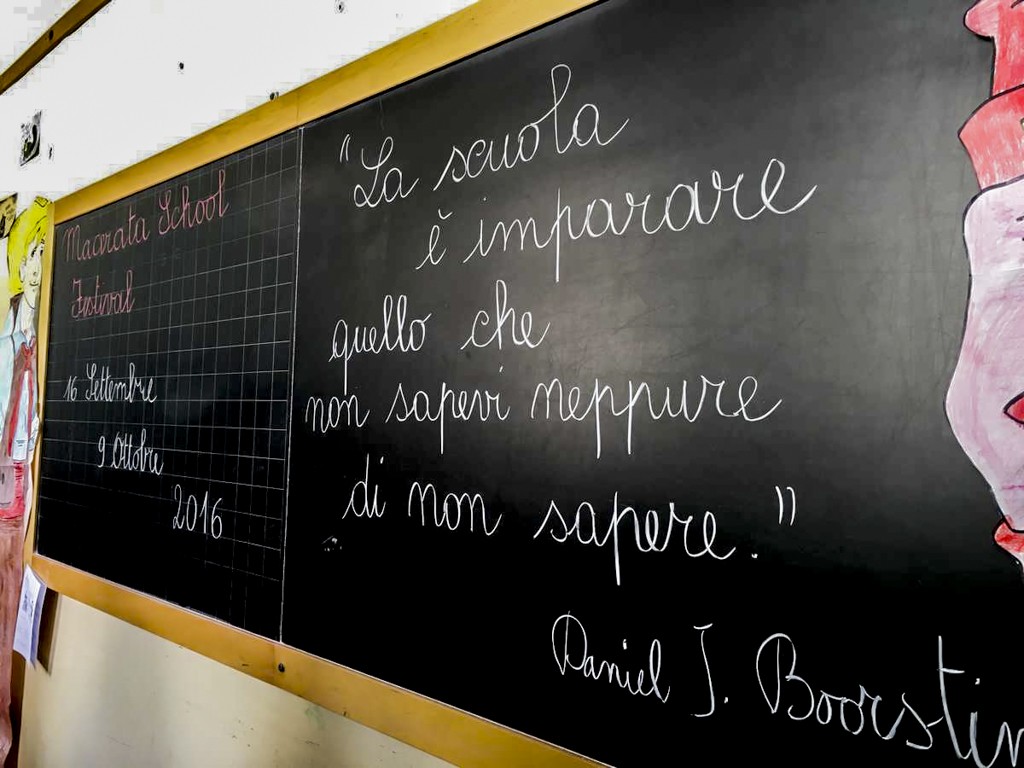 Macerata School
Festival
16 Settembre
9 Ottobre
2016
"La scuola
è imparare
quello che
non sapevi neppure
di non sapere."
Daniel J. Boorstin